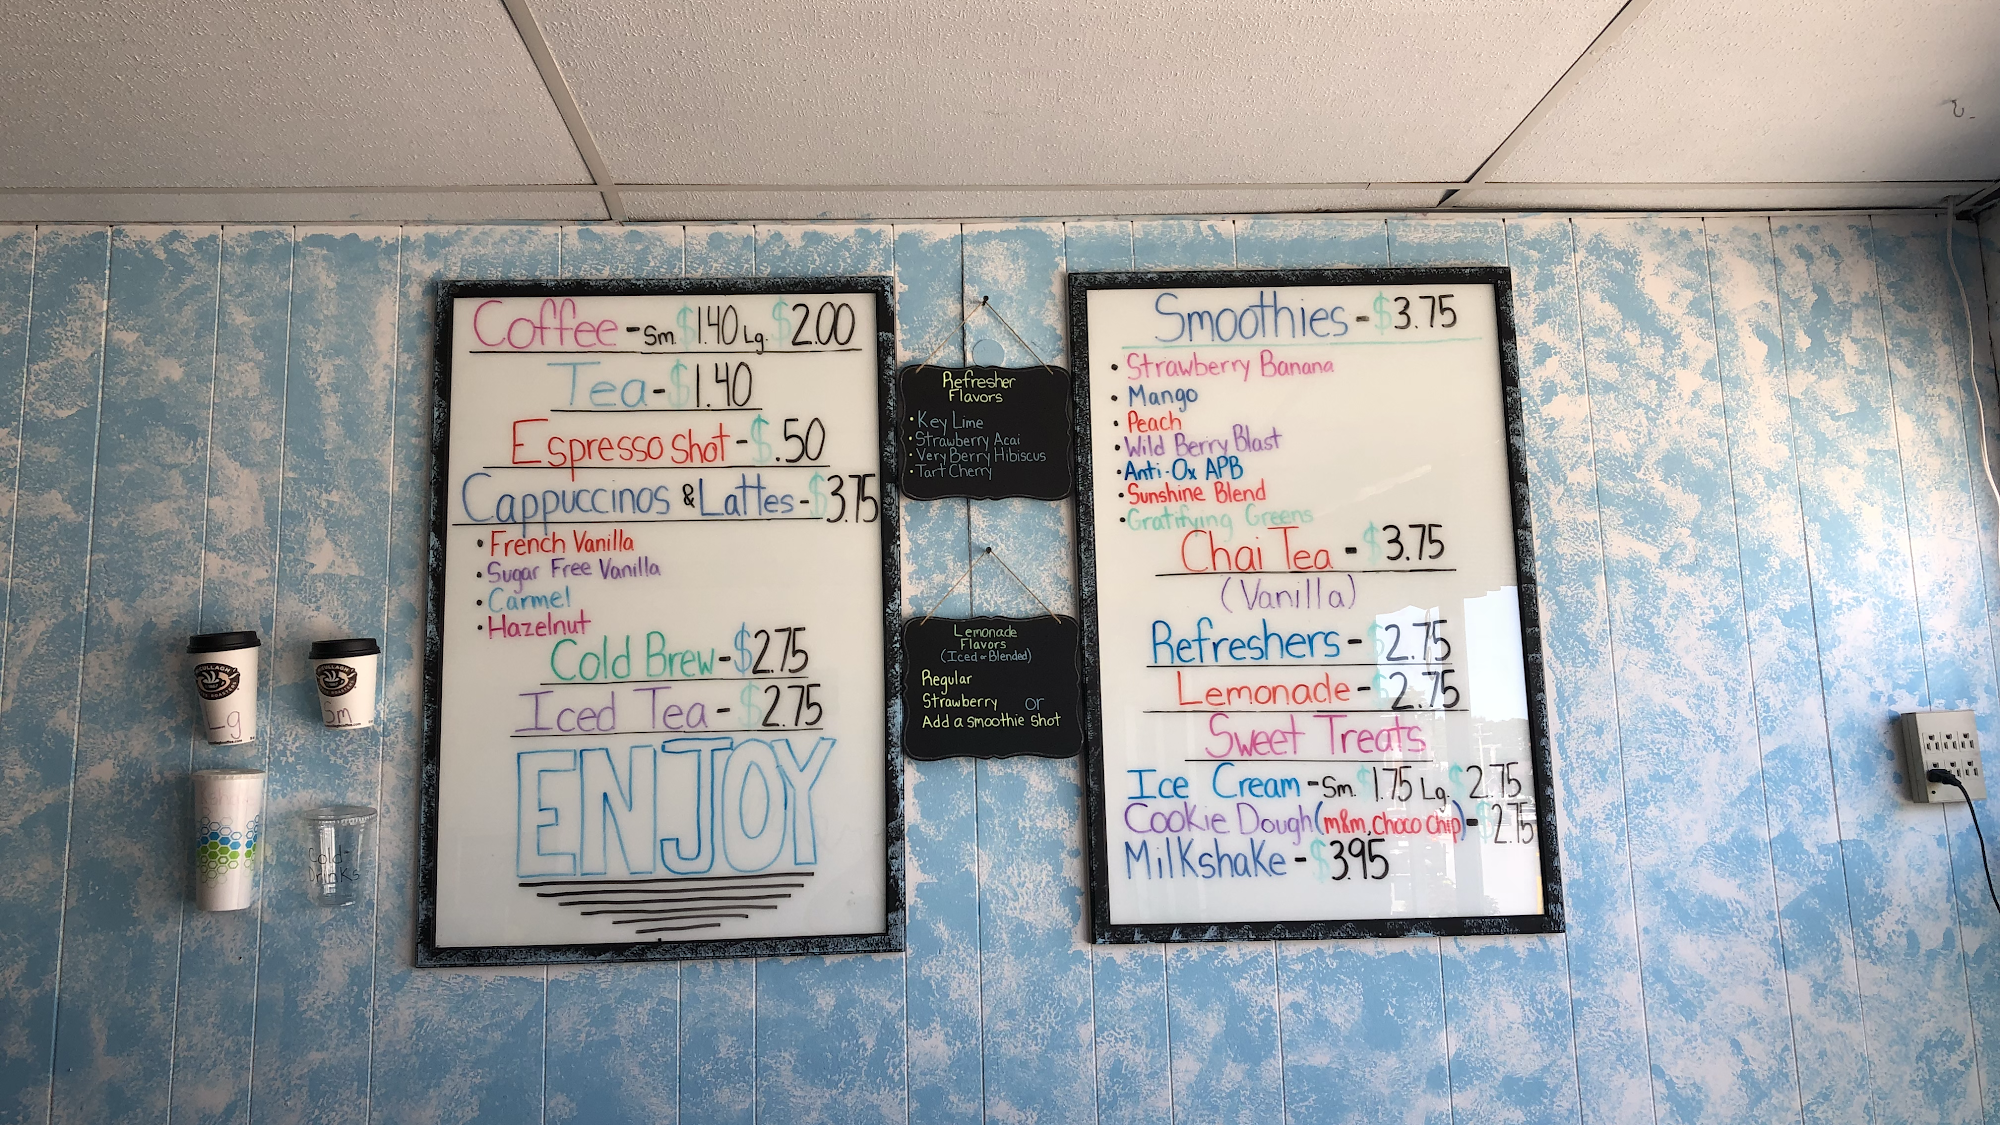 Coffee - Sm. $1.40 Lg. $2.00
Tea - $1.40
Espresso shot - $.50
Cappuccinos & Lattes - $3.75
• French Vanilla
• Sugar Free Vanilla
• Carmel
• Hazelnut
Cold Brew - $2.75
Iced Tea - $2.75
ENJOY
Refresher
Flavors
• Key Lime
• Strawberry Acai
• Very Berry Hibiscus
• Tart Cherry
Lemonade
Flavors
(Iced or Blended)
Regular
Strawberry or
Add a smoothie shot
Smoothies - $3.75
• Strawberry Banana
• Mango
• Peach
• Wild Berry Blast
• Anti-Ox APB
• Sunshine Blend
• Gratifying Greens
Chai Tea - $3.75
(Vanilla)
Refreshers - $2.75
Lemonade - $2.75
Sweet Treats
Ice Cream - Sm. $1.75 Lg. $2.75
Cookie Dough (m&m, Choco Chip) - $2.75
Milkshake - $3.95
Lg
Sm
Cold-
Drinks